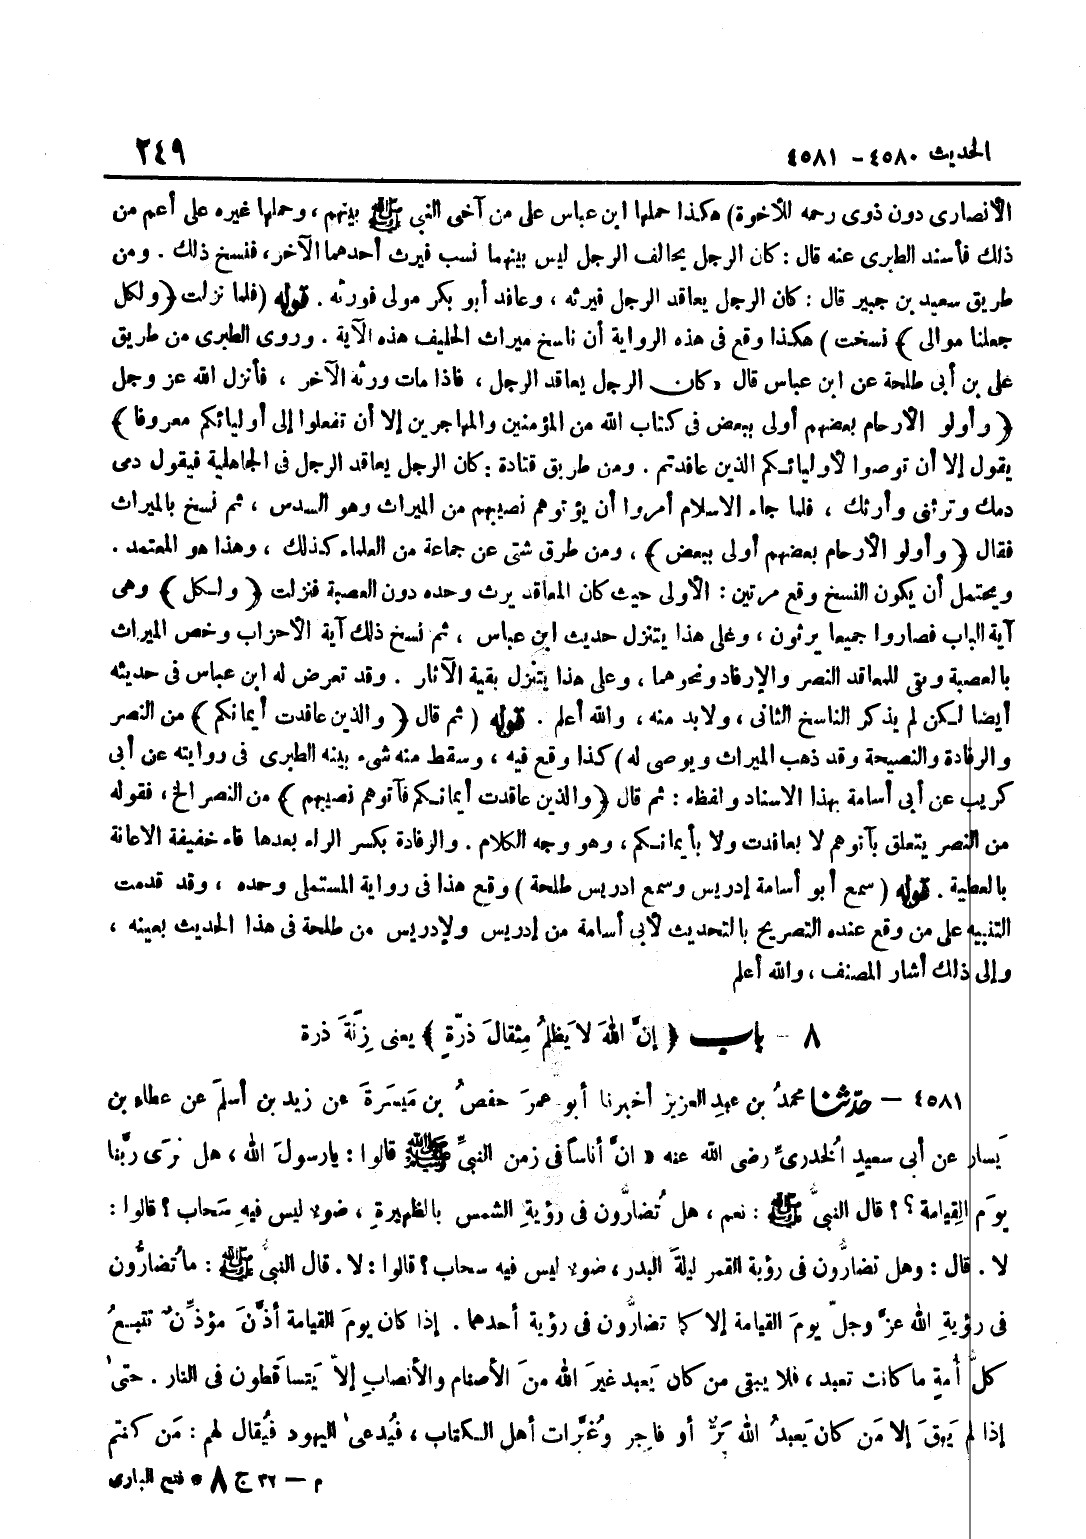 الحديث ٤٥٨٠ - ٤٥٨١ ٢٤٩
الأنصارى دون ذوى رحمه للأخوة) هكذا حملها ابن عباس على من آخى النبي ﷺ بينهم ، وحملها غيره على أعم من
ذلك فأسند الطبرى عنه قال : كان الرجل يحالف الرجل ليس بينهما نسب فيرث أحدهما الآخر ، فنسخ ذلك . ومن
طريق سعيد بن جبير قال : كان الرجل يعاقد الرجل فيرثه ، وعاقد أبو بكر مولى فورثه . قوله (فلما نزلت ﴿ ولكل
جعلنا موالى ﴾ نسخت ) هكذا وقع فى هذه الرواية أن ناسخ ميراث الحليف هذه الآية . وروى الطبرى من طريق
على بن أبى طلحة عن ابن عباس قال « كان الرجل يعاقد الرجل ، فاذا مات ورثه الآخر ، فأنزل الله عز وجل
﴿ وأولو الأرحام بعضهم أولى ببعض فى كتاب الله من المؤمنين والمهاجرين إلا أن تفعلوا إلى أوليائكم معروفا ﴾
يقول إلا أن توصوا لأوليائكم الذين عاقدتم . ومن طريق قتادة : كان الرجل يعاقد الرجل فى الجاهلية فيقول دمى
دمك وترثنى وأرثك ، فلما جاء الاسلام أمروا أن يؤتوهم نصيبهم من الميراث وهو السدس ، ثم نسخ بالميراث
فقال ﴿ وأولو الأرحام بعضهم أولى ببعض ﴾ ، ومن طرق شتى عن جماعة من العلماء كذلك ، وهذا هو المعتمد .
ويحتمل أن يكون النسخ وقع مرتين : الأولى حيث كان المعاقد يرث وحده دون العصبة فنزلت ﴿ ولكل ﴾ وهى
آية الباب فصاروا جميعا يرثون ، وعلى هذا يتنزل حديث ابن عباس ، ثم نسخ ذلك آية الأحزاب وخص الميراث
بالعصبة وبقى للمعاقد النصر والإرفاد ونحوهما ، وعلى هذا يتنزل بقية الآثار . وقد تعرض له ابن عباس فى حديثه
أيضا لكن لم يذكر الناسخ الثانى ، ولابد منه ، والله أعلم . قوله ( ثم قال ﴿ والذين عاقدت أيمانكم ﴾ من النصر
والرفادة والنصيحة وقد ذهب الميراث ويوصى له ) كذا وقع فيه ، وسقط منه شىء بينه الطبرى فى روايته عن أبى
كريب عن أبى أسامة بهذا الاسناد ولفظه : ثم قال ﴿ والذين عاقدت أيمانكم فآتوهم نصيبهم ﴾ من النصر الخ ، فقوله
من النصر يتعلق بآتوهم لا بعاقدت ولا بأيمانكم ، وهو وجه الكلام . والرفادة بكسر الراء بعدها فاء خفيفة الاعانة
بالعطية . قوله ( سمع أبو أسامة إدريس وسمع ادريس طلحة ) وقع هذا فى رواية المستملى وحده ، وقد قدمت
التنبيه على من وقع عنده التصريح بالتحديث لأبى أسامة من إدريس ولإدريس من طلحة فى هذا الحديث بعينه ،
وإلى ذلك أشار المصنف ، والله أعلم
٨ - باب ﴿ إنَّ اللهَ لا يَظلمُ مِثقالَ ذرَّةٍ ﴾ يعنى زِنَةَ ذرة
٤٥٨١ - حدّثنا محمدُ بن عبدِ العزيز أخبرنا أبو عمرَ حفصُ بن مَيسَرةَ عن زيد بن أسلمَ عن عطاء بن
يَسار عن أبى سعيدٍ الخدرىِّ رضى الله عنه « انَّ أناساً فى زمن النبيِّ ﷺ قالوا : يارسولَ الله ، هل نَرَى ربَّنا
يومَ القِيامة ؟ ؟ قال النبىُّ ﷺ : نعم ، هل تُضارُّون فى رؤيةِ الشمس بالظهيرةِ ، ضوء ليس فيهِ سَحاب ؟ قالوا :
لا . قال : وهل تضارُّون فى رؤية القمر ليلةَ البدر ، ضوء ليس فيه سحاب ؟ قالوا : لا . قال النبىُّ ﷺ : ما تُضارُّون
فى رؤيةِ الله عزَّ وجلّ يومَ القيامة إلا كما تضارُّون فى رؤية أحدهما . إذا كان يومَ القيامة أذَّنَ مؤذِّنٌ تتبعُ
كلُّ أُمةٍ ما كانت تعبد ، فلا يبقى من كان يَعبد غيرَ الله منَ الأصنام والأنصابِ إلاّ يَتساقَطون فى النار . حتىٰ
إذا لم يَبقَ إلا مَن كان يَعبدُ الله بَرٌّ أو فاجر وغُبَّرات أهل الكتاب ، فيُدعىٰ اليهود فيُقال لهم : مَن كنتم
م - ٣٢ ج ٨ * فتح البارى